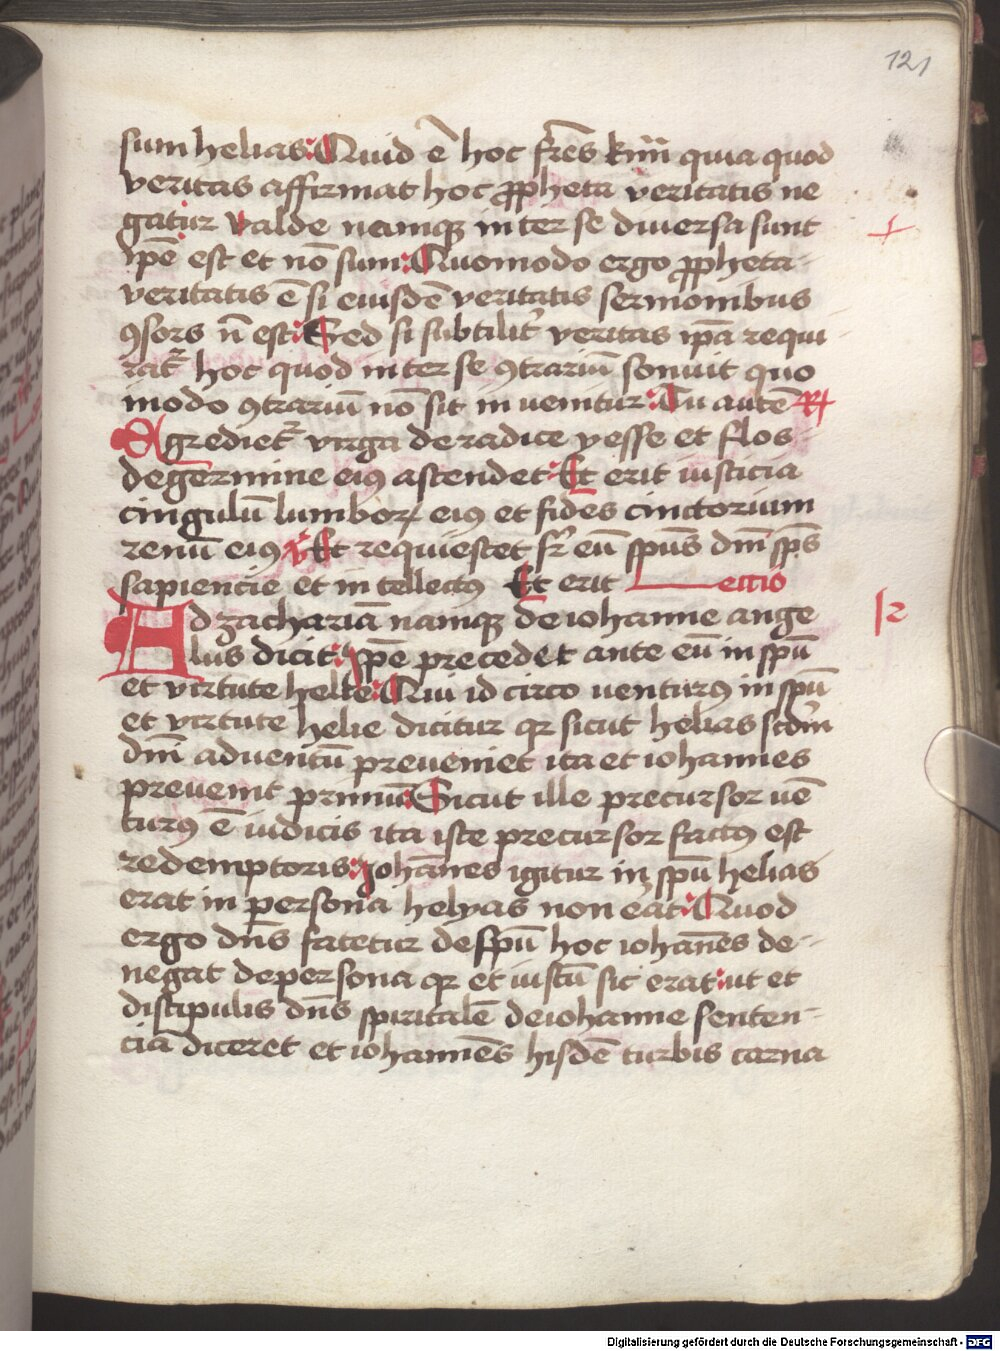 121
sum helias: Quid ē hoc fr̄es kmi̅ quia quod
veritas affirmat hoc ꝓpheta veritatis ne
gatur valde namqꝫ inter se diuersa sunt
ip̄e est et nō sum: Quomodo ergo ꝓpheta
veritatis ē si eiusdē veritatis sermonibus
ꝯsors n̄ est: Sed si subtilit̉ veritas ip̄a requi
rat᷑ hoc quod inter se ꝯtrariū sonuit quo
modo ꝯtrariū nō sit inuenitur: Tu autē R
Egrediet᷑ virga de radice yesse et flos
degermine eiꝰ ascendet: Et erit iusticia
cingulū lumboꝝ eiꝰ et fides cinctorium
renū eiꝰ V Et requiescet sr̄ eū sp̄us dn̄i sp̄s
sapiencie et intellectꝰ Et erit Lectio
Ad zachariā namqꝫ de iohanne ange
lus dicit: Ip̄e precedet ante eū in sp̄u
et virtute helie: Qui id circo venturꝰ in sp̄u
et virtute helie dicitur qꝛ sicut helias scd̄m
dn̄i aduentū preueniet ita et iohannes
preuenit primū: Sicut ille precursor uē
turꝰ ē iudicis ita iste precursor factꝰ est
redemptoris: Johānes igitur in sp̄u helias
erat in persona helyas non erat: Quod
ergo dn̄s fatetur de sp̄u hoc iohānes de-
negat depersona qꝛ et iustū sic erat: ut et
discipulis dn̄s spiritalē deiohanne senten-
ciā diceret et iohannēs hisdē turbis carna
Digitalisierung gefördert durch die Deutsche Forschungsgemeinschaft - DFG